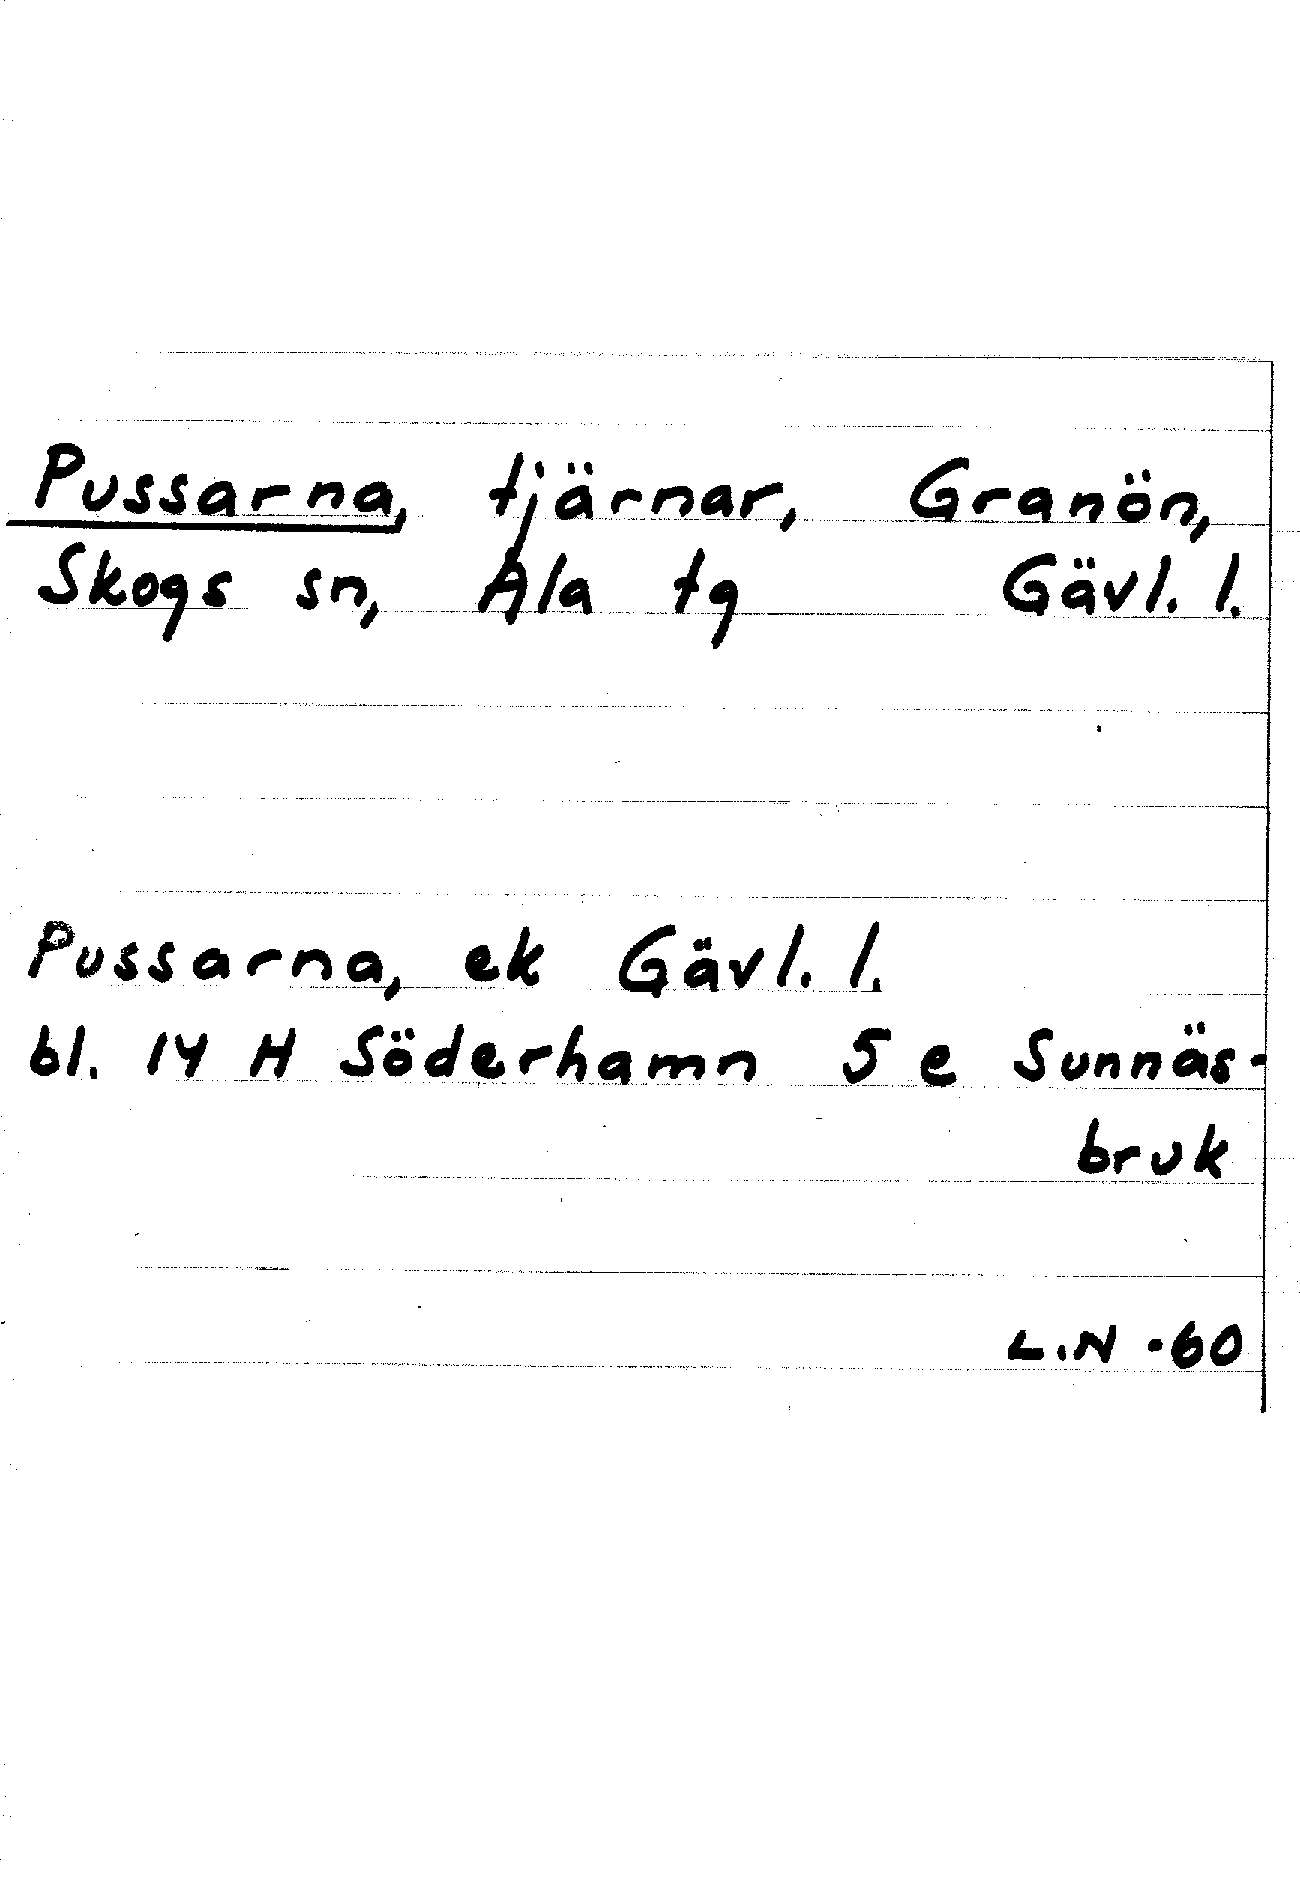 Pussarna, tjärnar, Granön,
Skogs sn, Ala tg Gävl. l.
Pussarna, ek Gävl. l.
bl. 14 H Söderhamn 5 e Sunnäs-
bruk
L.N -60